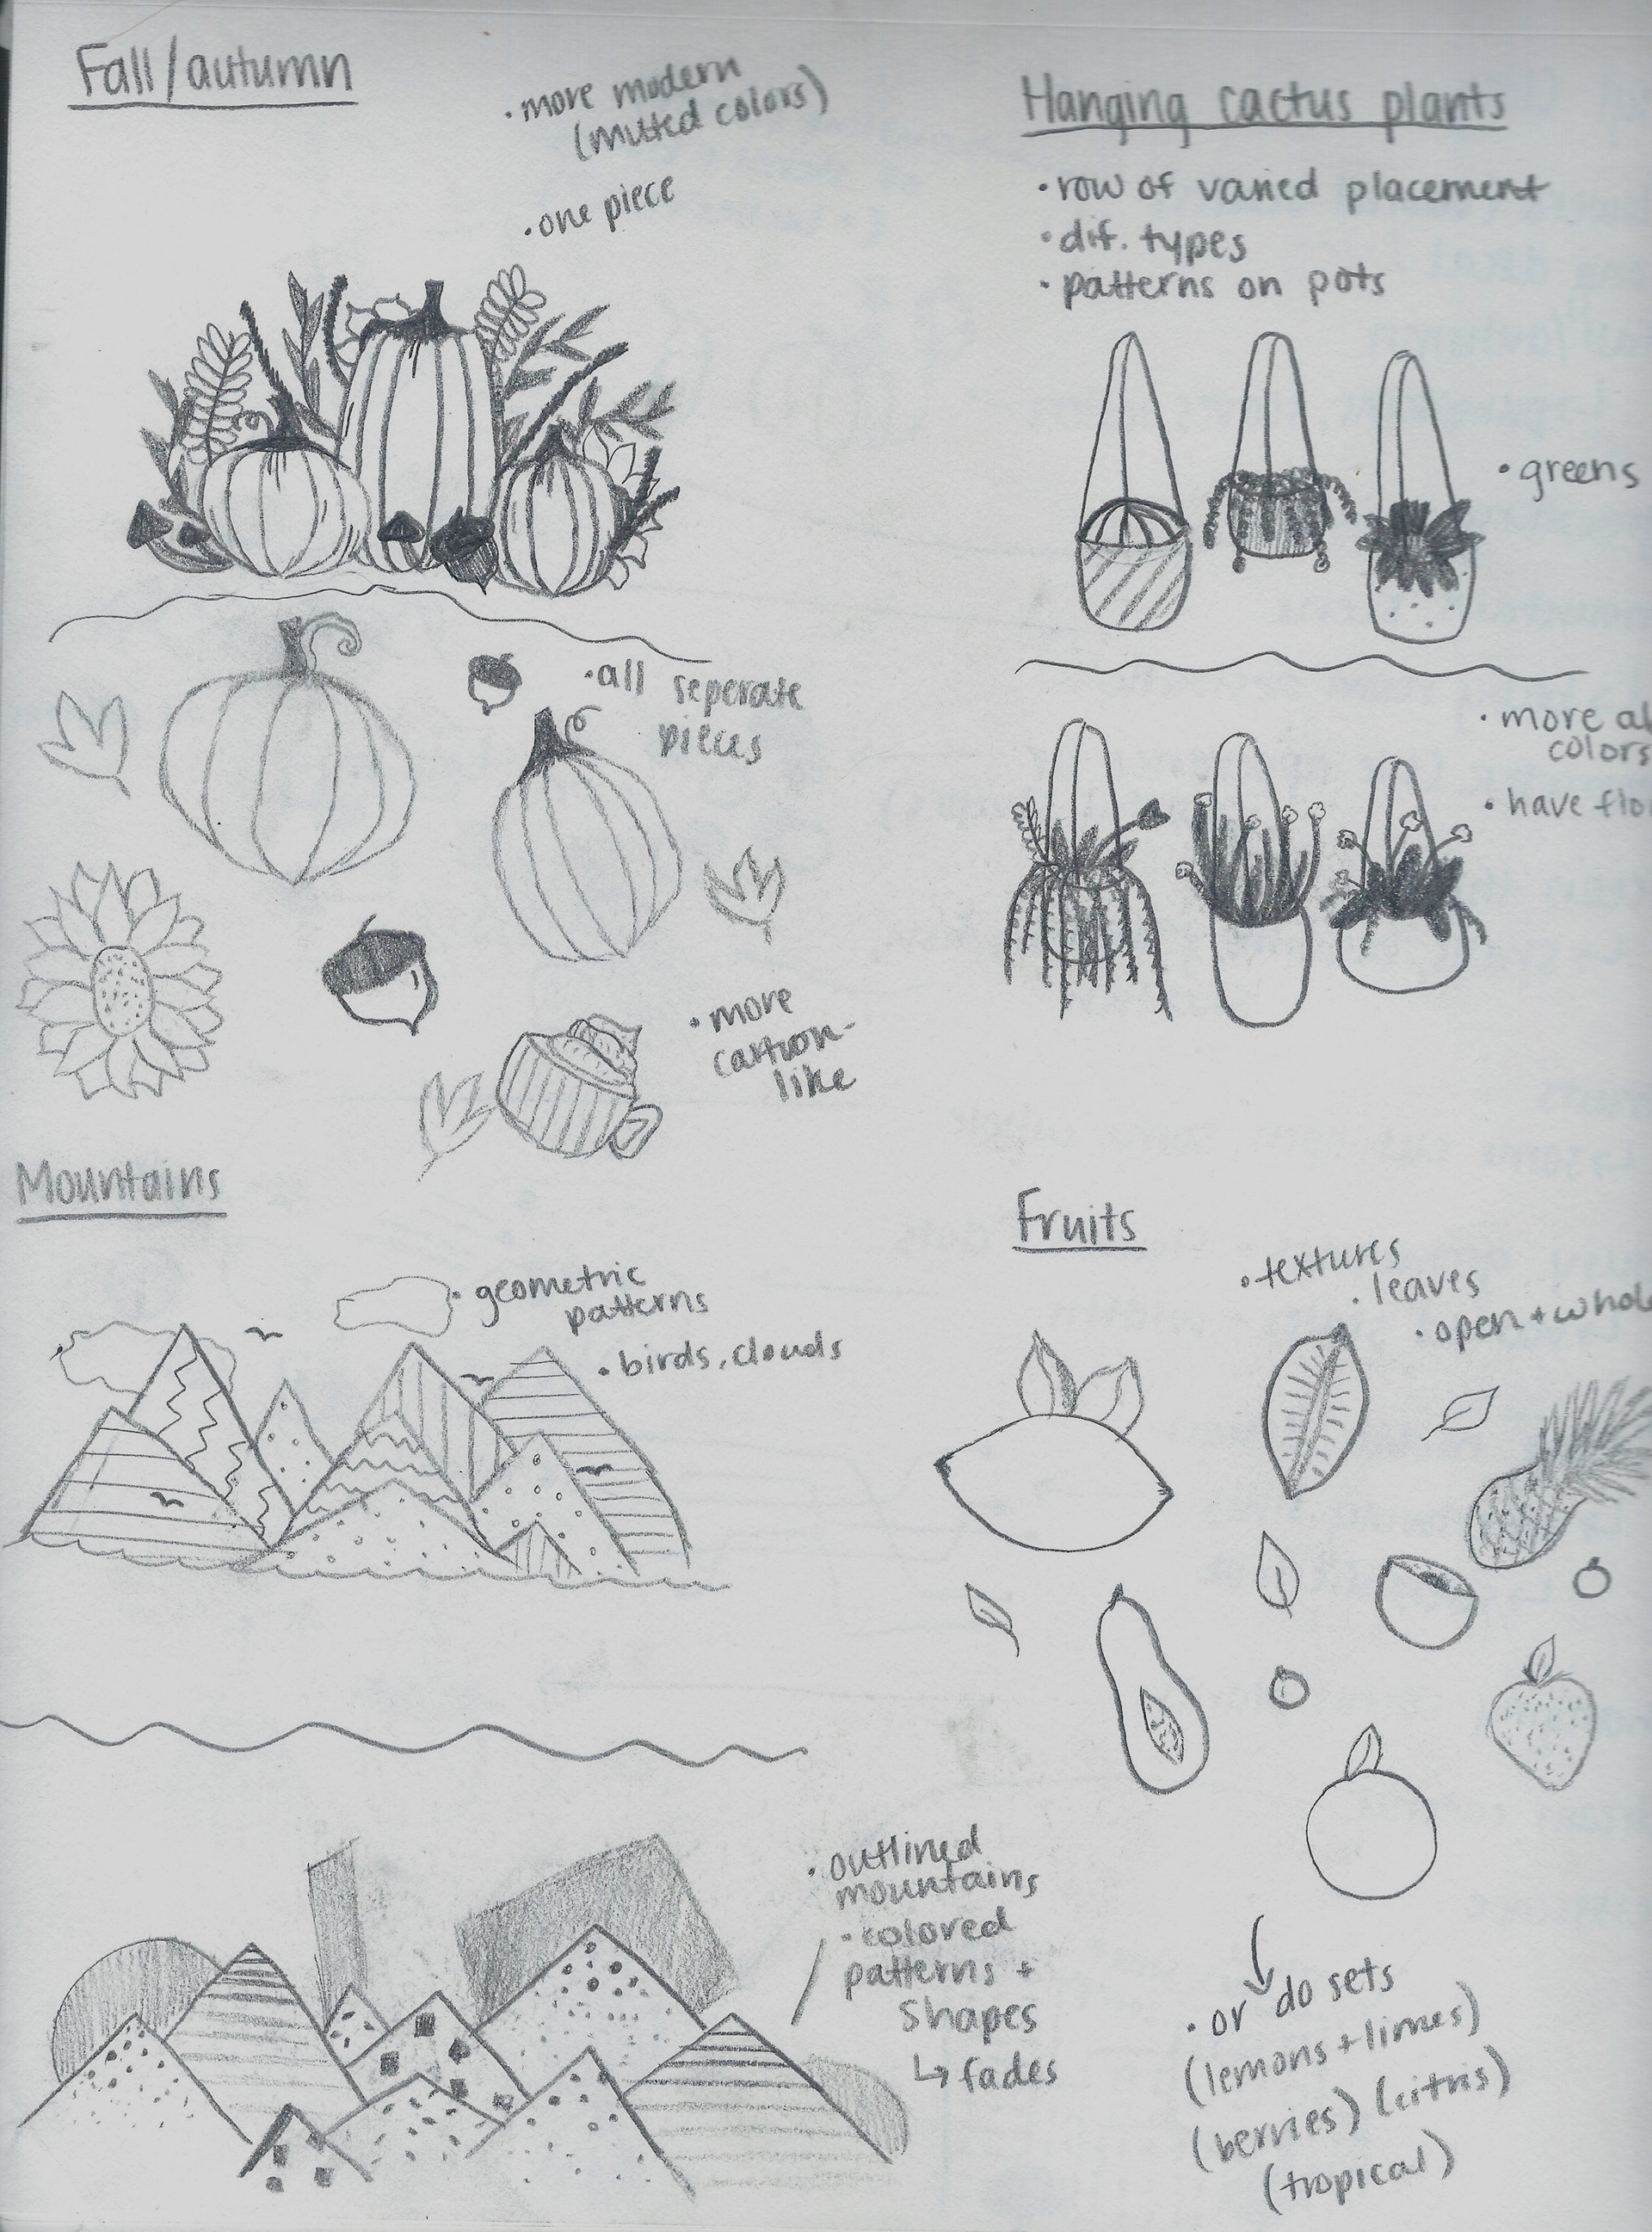 Fall/autumn
• more modern
(muted colors)
• one piece
• all seperate
pieces
• more
cartoon-
like
Hanging cactus plants
• row of varied placement
• dif. types
• patterns on pots
• greens
• more
colors
• have
Mountains
• geometric
patterns
• birds, clouds
• outlined
mountains
• colored
patterns +
shapes
↳ fades
Fruits
• textures
• leaves
• open + whole
• or do sets
(lemons + limes)
(berries) (citris)
(tropical)